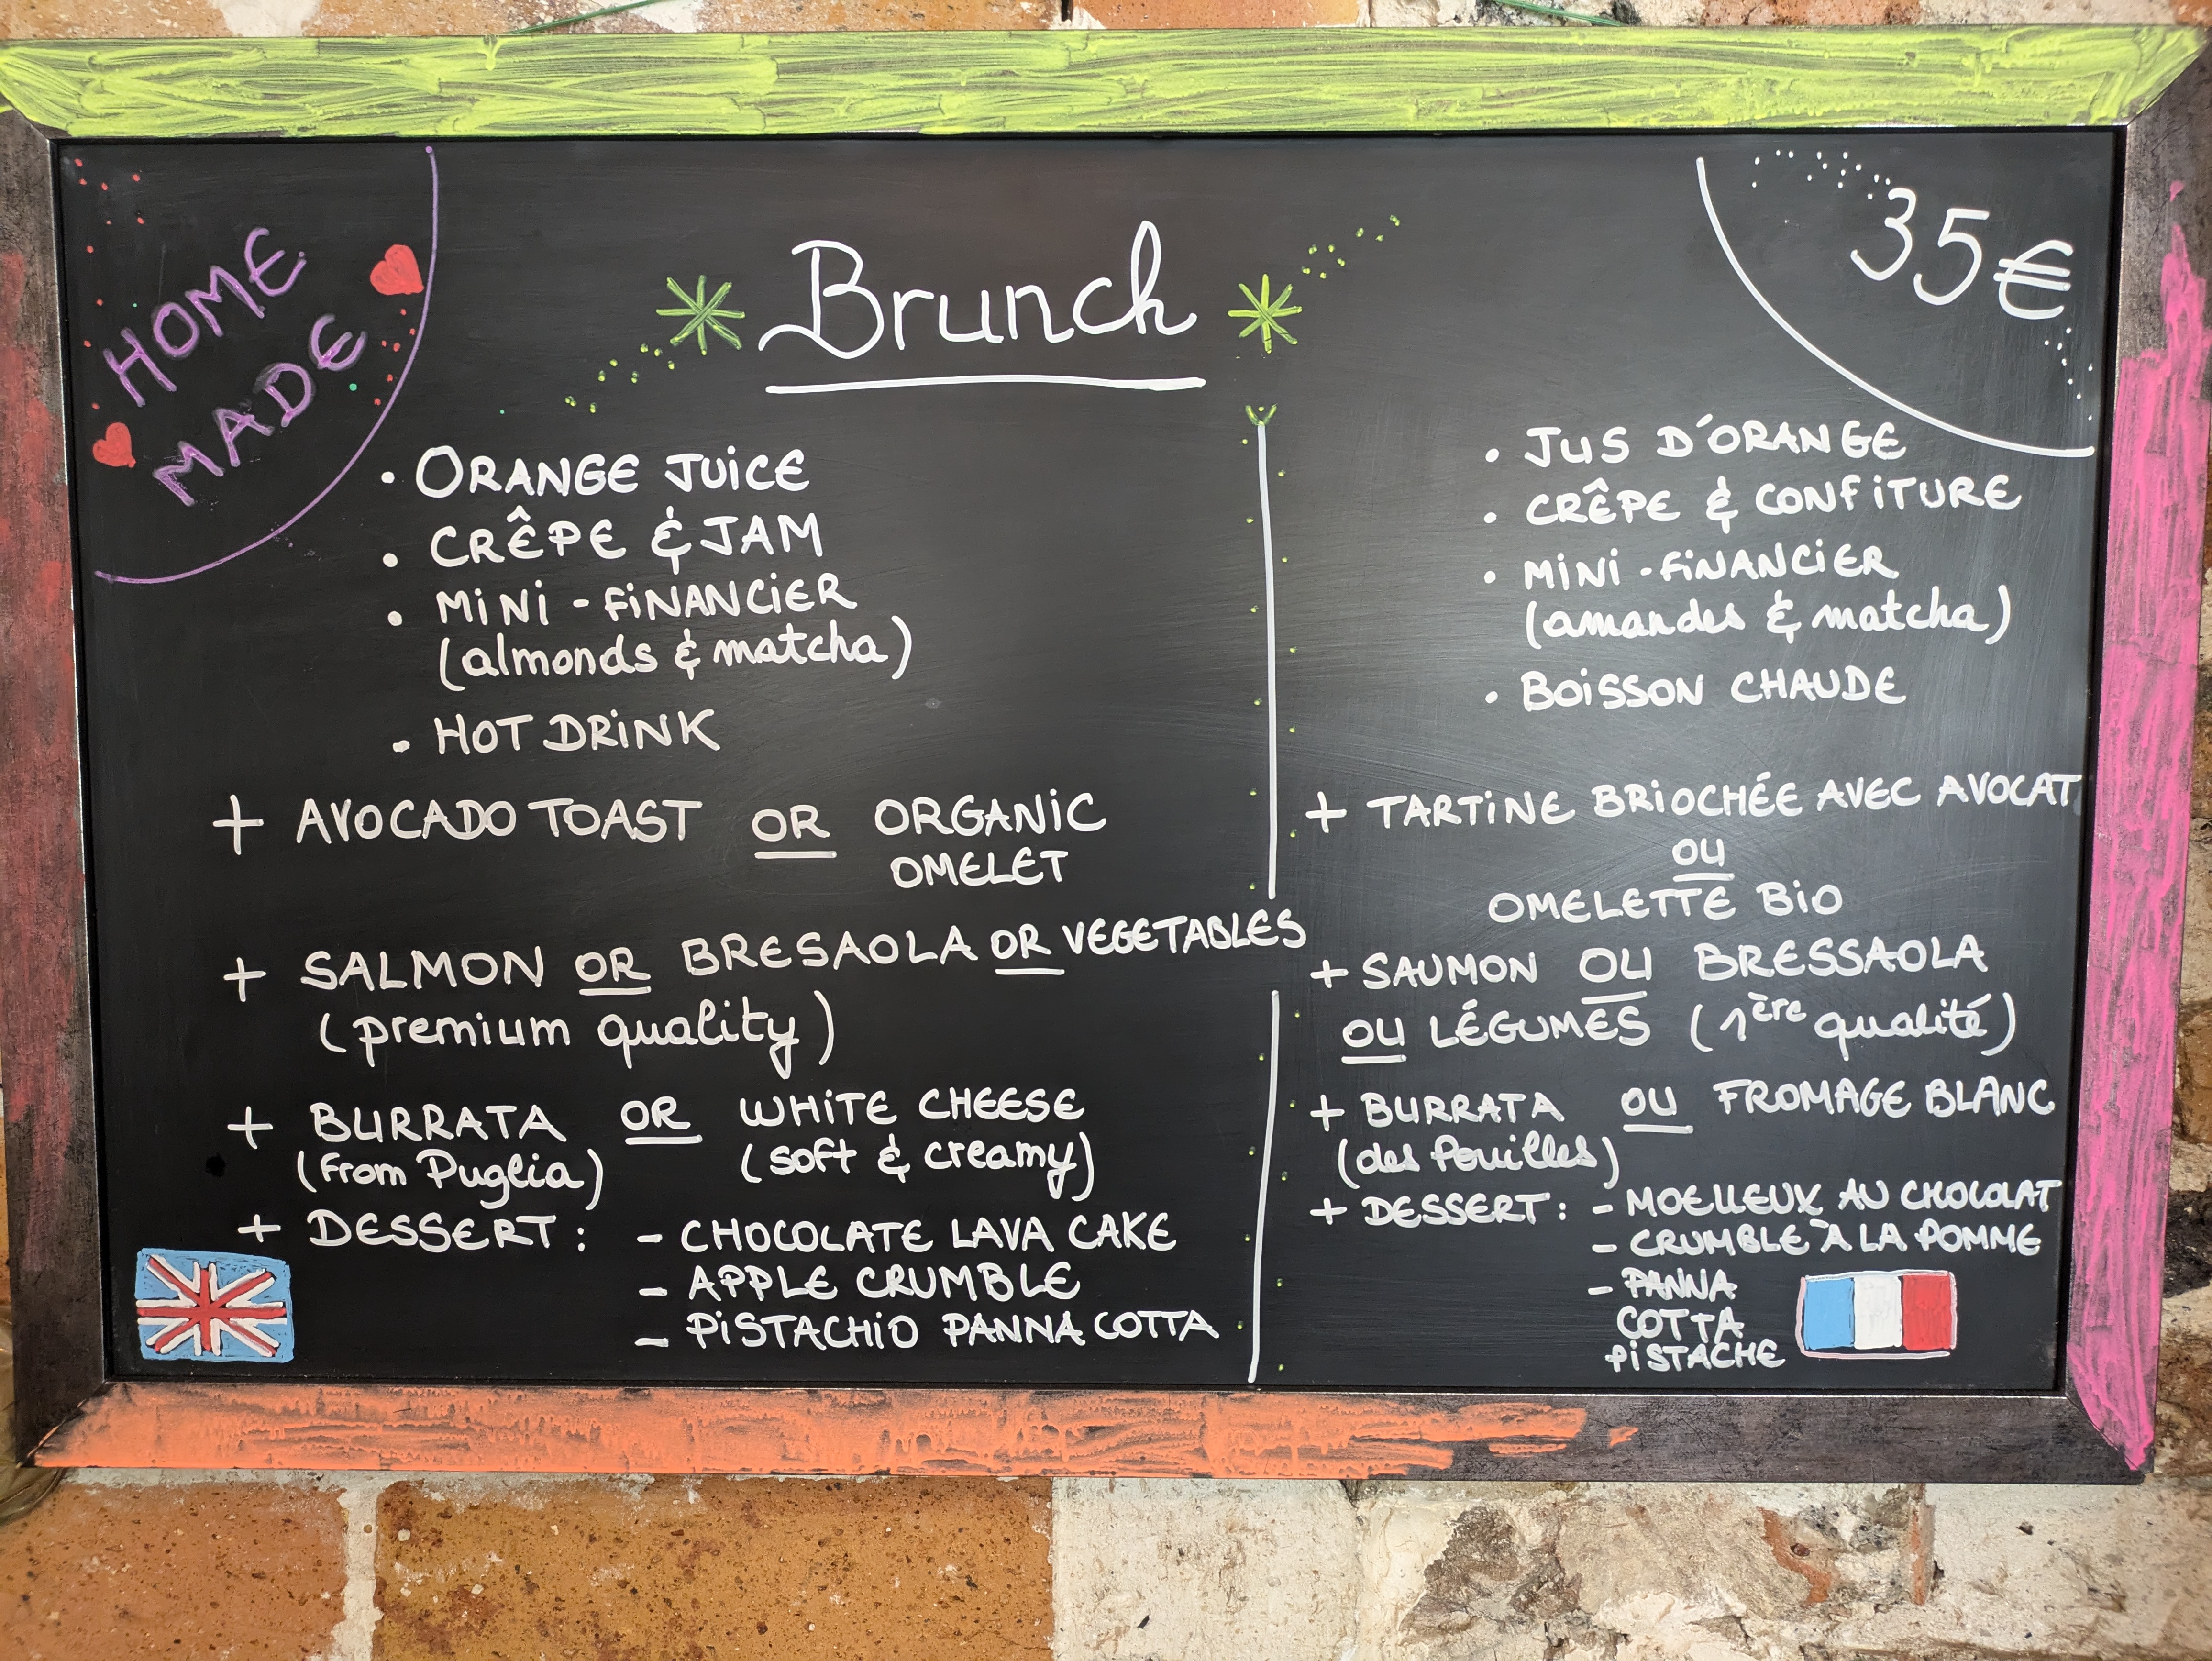 HOME
MADE
Brunch
35€
• ORANGE JUICE
• CRÊPE & JAM
• MINI-FINANCIER
(almonds & matcha)
• HOT DRINK
+ AVOCADO TOAST OR ORGANIC
OMELET
+ SALMON OR BRESAOLA OR VEGETABLES
(premium quality)
+ BURRATA OR WHITE CHEESE
(from Puglia) (soft & creamy)
+ DESSERT: - CHOCOLATE LAVA CAKE
- APPLE CRUMBLE
- PISTACHIO PANNA COTTA
• JUS D'ORANGE
• CRÊPE & CONFITURE
• MINI-FINANCIER
(amandes & matcha)
• BOISSON CHAUDE
+ TARTINE BRIOCHÉE AVEC AVOCAT
OU
OMELETTE BIO
+ SAUMON OU BRESSAOLA
OU LÉGUMES (1ère qualité)
+ BURRATA OU FROMAGE BLANC
(des Pouilles)
+ DESSERT: - MOELLEUX AU CHOCOLAT
- CRUMBLE À LA POMME
- PANNA
COTTA
PISTACHE